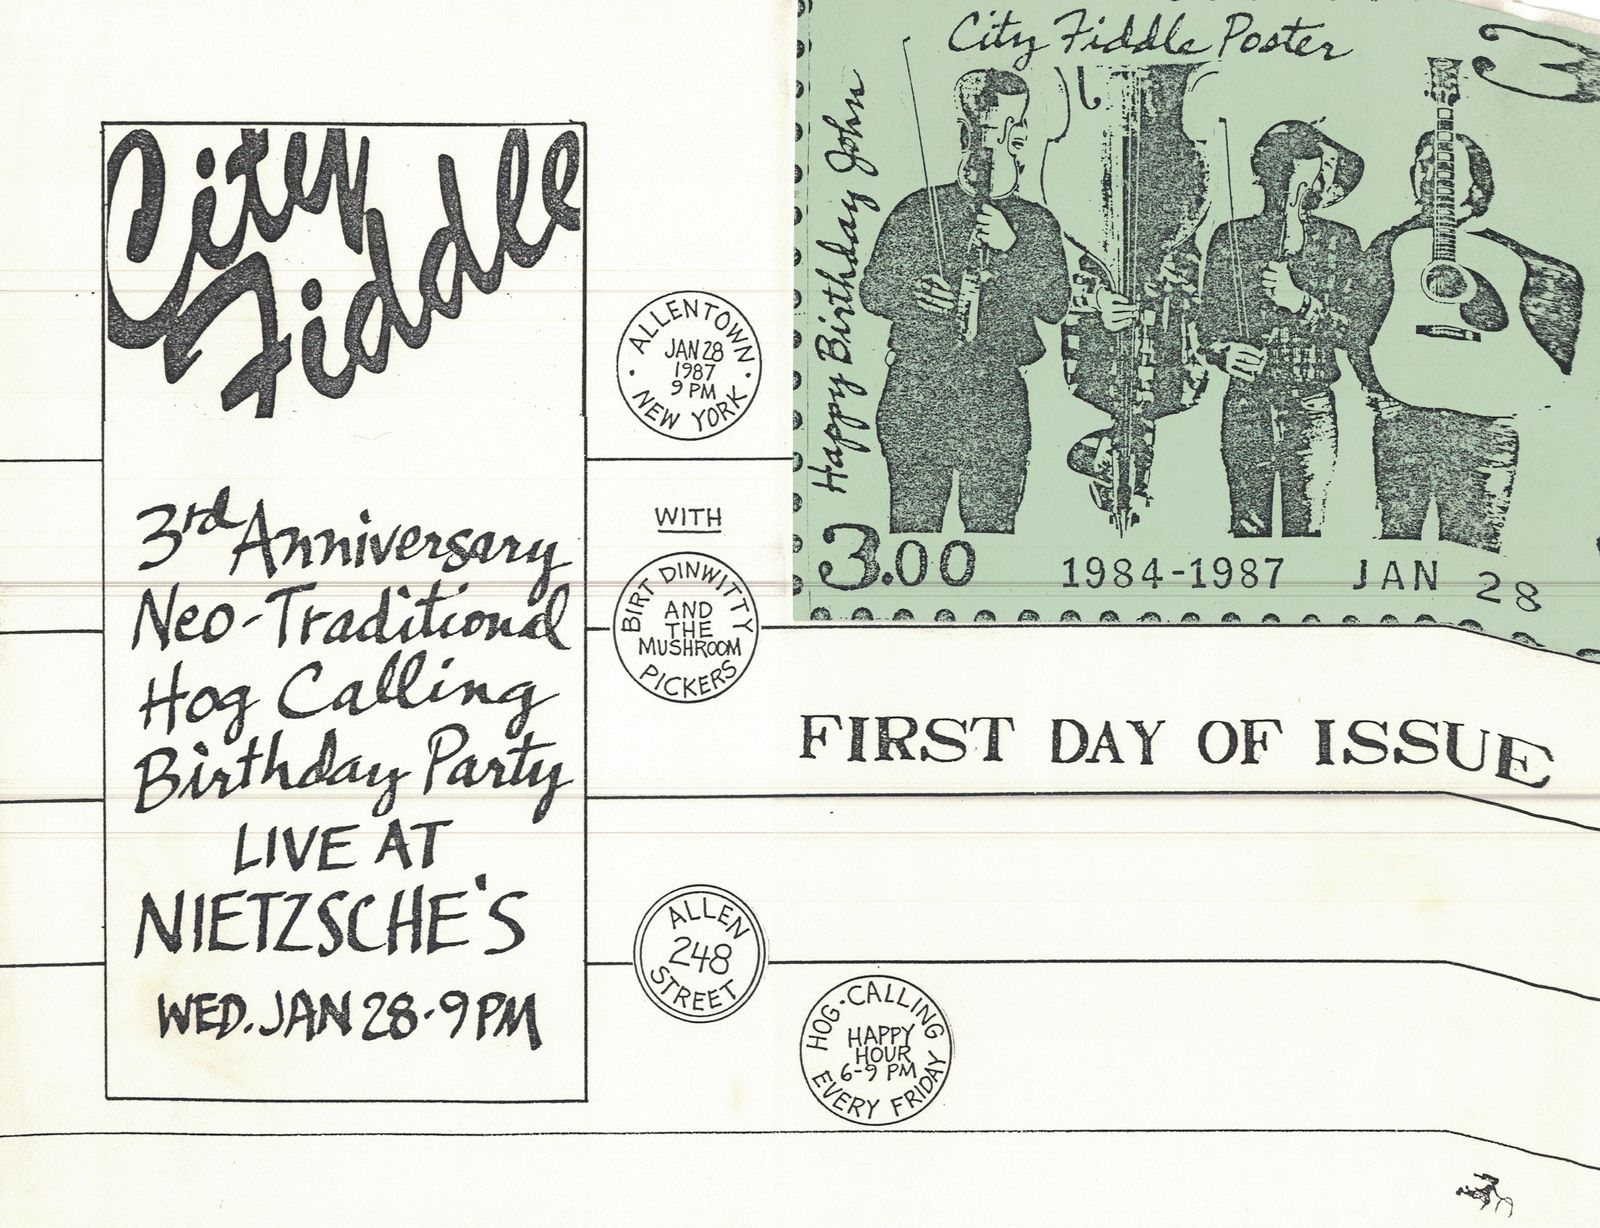 City
Fiddle
3rd Anniversary
Neo-Traditional
Hog Calling
Birthday Party
LIVE AT
NIETZSCHE'S
WED. JAN 28-9PM
ALLENTOWN
JAN 28
1987
9 PM
NEW YORK
WITH
BIRT DINWITTY
AND
THE
MUSHROOM
PICKERS
ALLEN
248
STREET
HOG-CALLING
HAPPY
HOUR
6-9 PM
EVERY FRIDAY
City Fiddle Poster
Happy Birthday John
3.00 1984-1987 JAN 28
FIRST DAY OF ISSUE